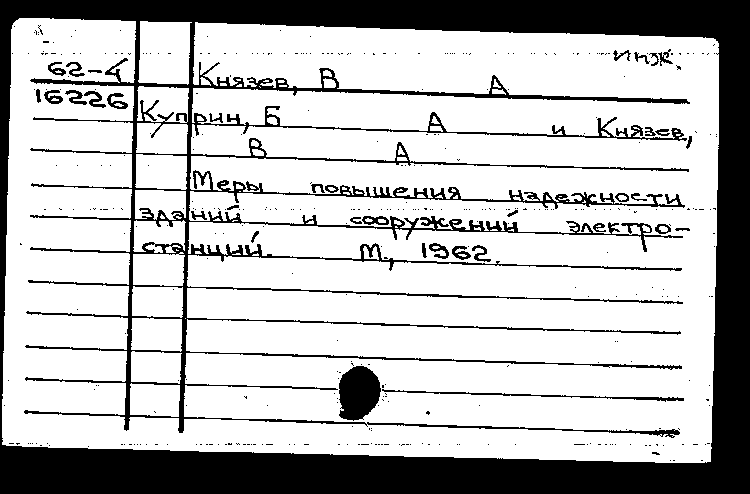 инж.
62-4 Князев, В А
16226 Куприн, Б А и Князев,
В А
Меры повышения надежности
зданий и сооружений электро-
станций. М., 1962.